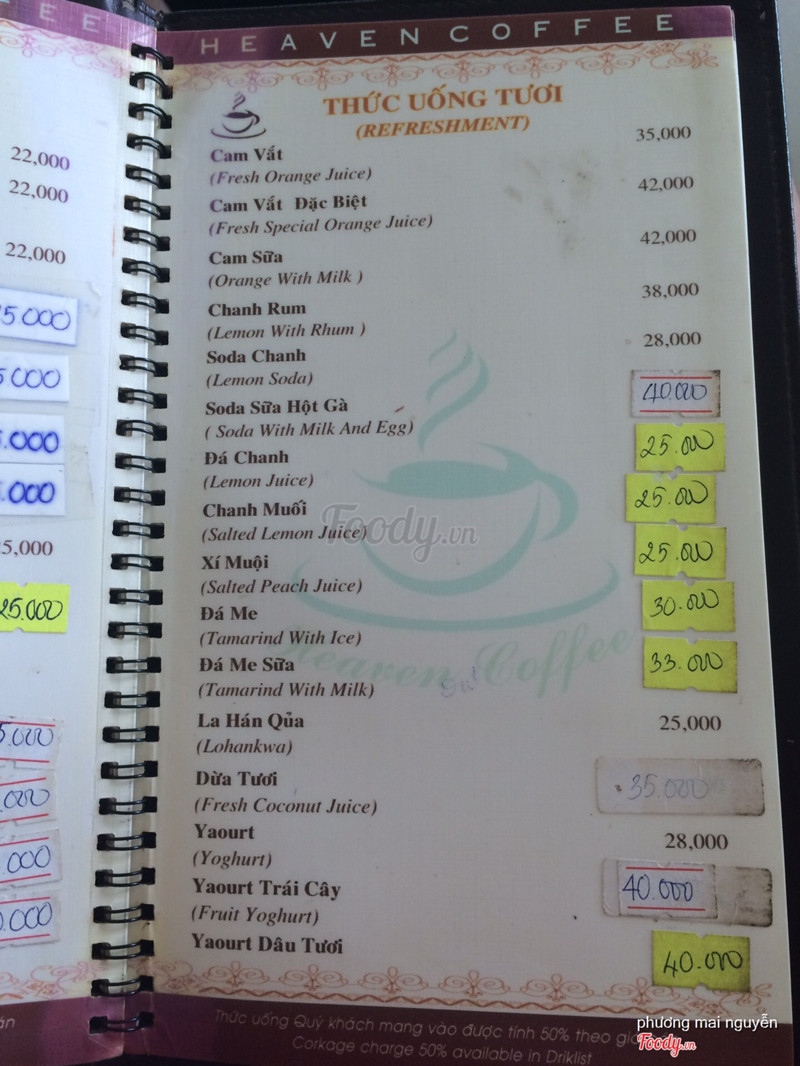 FEE
22,000
22,000
22,000
5.000
5000
.000
.000
5,000
25.000
5.000
.000
.000
0.000
HEAVEN COFFEE
THỨC UỐNG TƯƠI
(REFRESHMENT)
Cam Vắt 35,000
(Fresh Orange Juice)
Cam Vắt Đặc Biệt 42,000
(Fresh Special Orange Juice)
Cam Sữa 42,000
(Orange With Milk )
Chanh Rum 38,000
(Lemon With Rhum )
Soda Chanh 28,000
(Lemon Soda)
Soda Sữa Hột Gà 40.000
( Soda With Milk And Egg)
Đá Chanh 25.000
(Lemon Juice)
Chanh Muối 25.000
(Salted Lemon Juice)
Xí Muội 25.000
(Salted Peach Juice)
Đá Me 30.000
(Tamarind With Ice)
Đá Me Sữa 33.000
(Tamarind With Milk)
La Hán Qủa 25,000
(Lohankwa)
Dừa Tươi 35.000
(Fresh Coconut Juice)
Yaourt 28,000
(Yoghurt)
Yaourt Trái Cây 40.000
(Fruit Yoghurt)
Yaourt Dâu Tươi 40.000
Heaven Coffee
Foody.vn
Thức uống Quý khách mang vào được tính 50% theo
Corkage charge 50% available in Driklist
phương mai nguyễn
Foody.vn